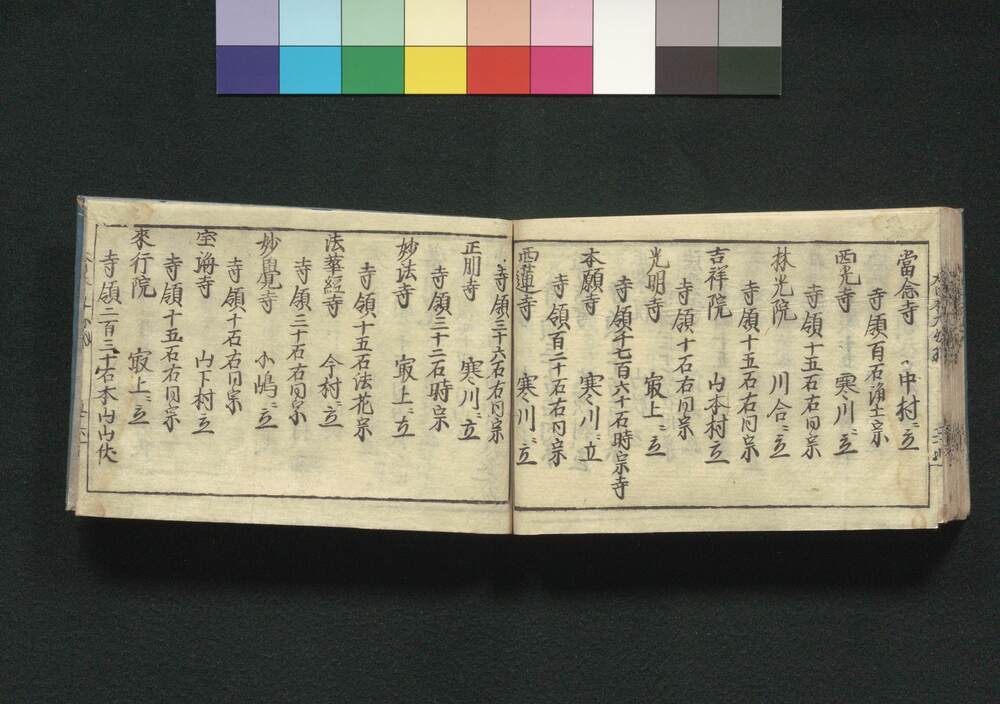 當念寺 中村ニ立
寺領百石浄土宗
西光寺 寒川ニ立
寺領十五石右同宗
林光院 川合ニ立
寺領十五石右同宗
吉祥院 山本村ニ立
寺領十石右同宗
光明寺 寂上ニ立
寺領千七百六十石時宗寺
本願寺 寒川ニ立
寺領百二十石右同宗
西蓮寺 寒川ニ立
寺領三十六石右同宗
正明寺 寒川ニ立
寺領三十二石時宗
妙法寺 寂上ニ立
寺領十五石法花宗
法華經寺 今村ニ立
寺領三十石右同宗
妙覺寺 小嶋ニ立
寺領十石右同宗
宝海寺 山下村ニ立
寺領十五石右同宗
來行院 寂上ニ立
寺領二百三十石本山山伏